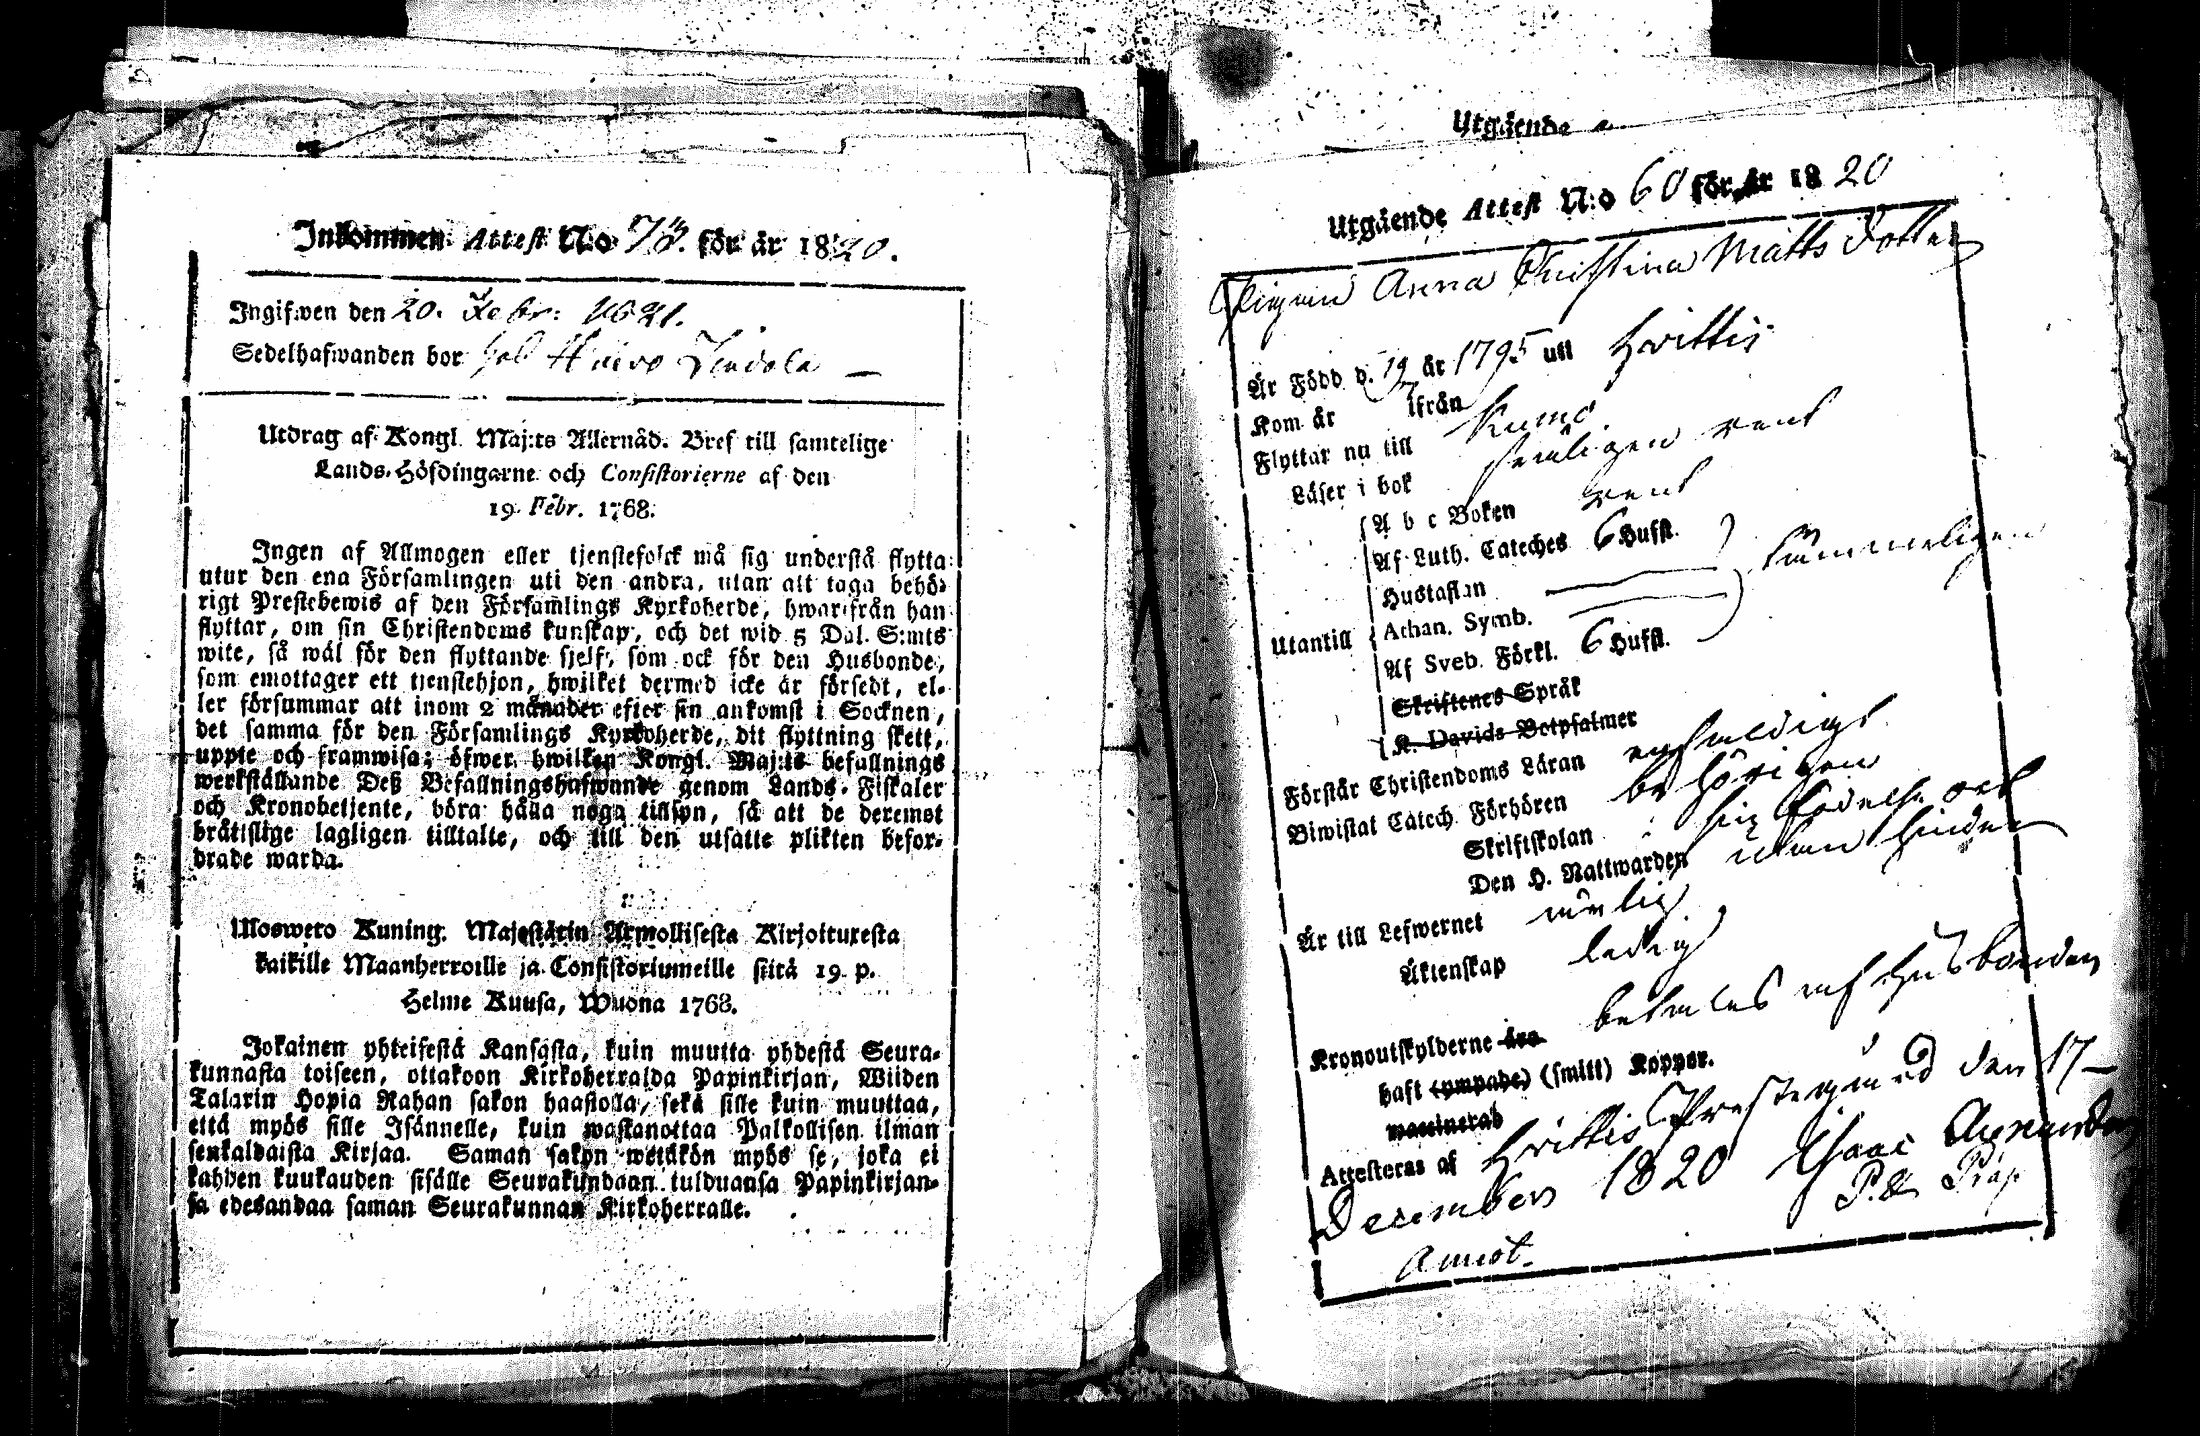 Inkommen Attest N:o 73. för år 1820.
Ingifwen den 20. Febr: 1821.
Sedelhafwanden bor
Utdrag af Kongl. Maj:ts Allernåd. Bref till samtelige
Lands-Höfdingarne och Consistorierne af den
19. Febr. 1768.
Ingen af Allmogen eller tjenstefolck må sig understå flytta
utur den ena Församlingen uti den andra, utan att taga behö-
rigt Prestebewis af den Församlings Kyrkoherde, hwarifrån han
flyttar, om sin Christendoms kunskap, och det wid 5 Dal. S:mts
wite, så wäl för den flyttande sjelf, som ock för den Husbonde,
som emottager ett tjenstehjon, hwilket dermed icke är försedt, el-
ler försummar att inom 2 månader efter sin ankomst i Socknen,
det samma för den Församlings Kyrkoherde, dit flyttning skett,
uppte och framwisa; öfwer hwilken Kongl. Maj:ts befallnings
werkställande Deß Befallningshafwande genom Lands-Fiskaler
och Kronobetjente, böra hålla noga tillsyn, så att de deremot
bråtslige lagligen tilltalte, och till den utsatte plikten befor-
drade warda.
Uloswето Kuning. Majestätin Armollisesta Kirjoituxesta
kaikille Maanherroille ja Consistoriumeille siitä 19 p.
Helme Kuusa, Wuona 1768.
Jokainen yhteisestä Kansasta, kuin muutta yhdestä Seura-
kunnasta toiseen, ottakoon Kirkoherralda Papinkirjan, Wiiden
Talarin Hopia Rahan sakon haastolla, sekä sille kuin muuttaa,
että myös sille Isännelle, kuin wastanottaa Palkollisen ilman
senkaldaista Kirjaa. Saman sakon wetäkön myös se, joka ei
kahden kuukauden sisälle Seurakundaan tulduansa Papinkirjan-
sa edesandaa saman Seurakunnan Kirkoherralle.
Utgående
Utgående Attest N:o 60 för år 1820
Pigan Anna Christina Matts Dotter
Är Född d. 19 år 1795 uti Hvittis
Kom år ifrån
Flyttar nu till Kumo
Läser i bok temligen rent
A b c Boken rent
Af Luth. Cateches 6 Hufst.
Hustaflan
Athan. Symb.
Utantill
Af Sveb. Förkl. 6 Hufst.
Skriftenes Språk
K. Davids Botpsalmer
Förstår Christendoms Läran enfaldigt
Biwistat Catech. Förhören behörigen
Skriftskolan
Den H. Nattwarden
Är till Lefwernet ärlig
Äktenskap ledig
Kronoutskylderne äro betalas af Husbonden
haft (ympade) (smitt) Koppor.
waccinerad
Attesteras af Hvittis Prestegård den 17
December 1820 Isaac
Annot.